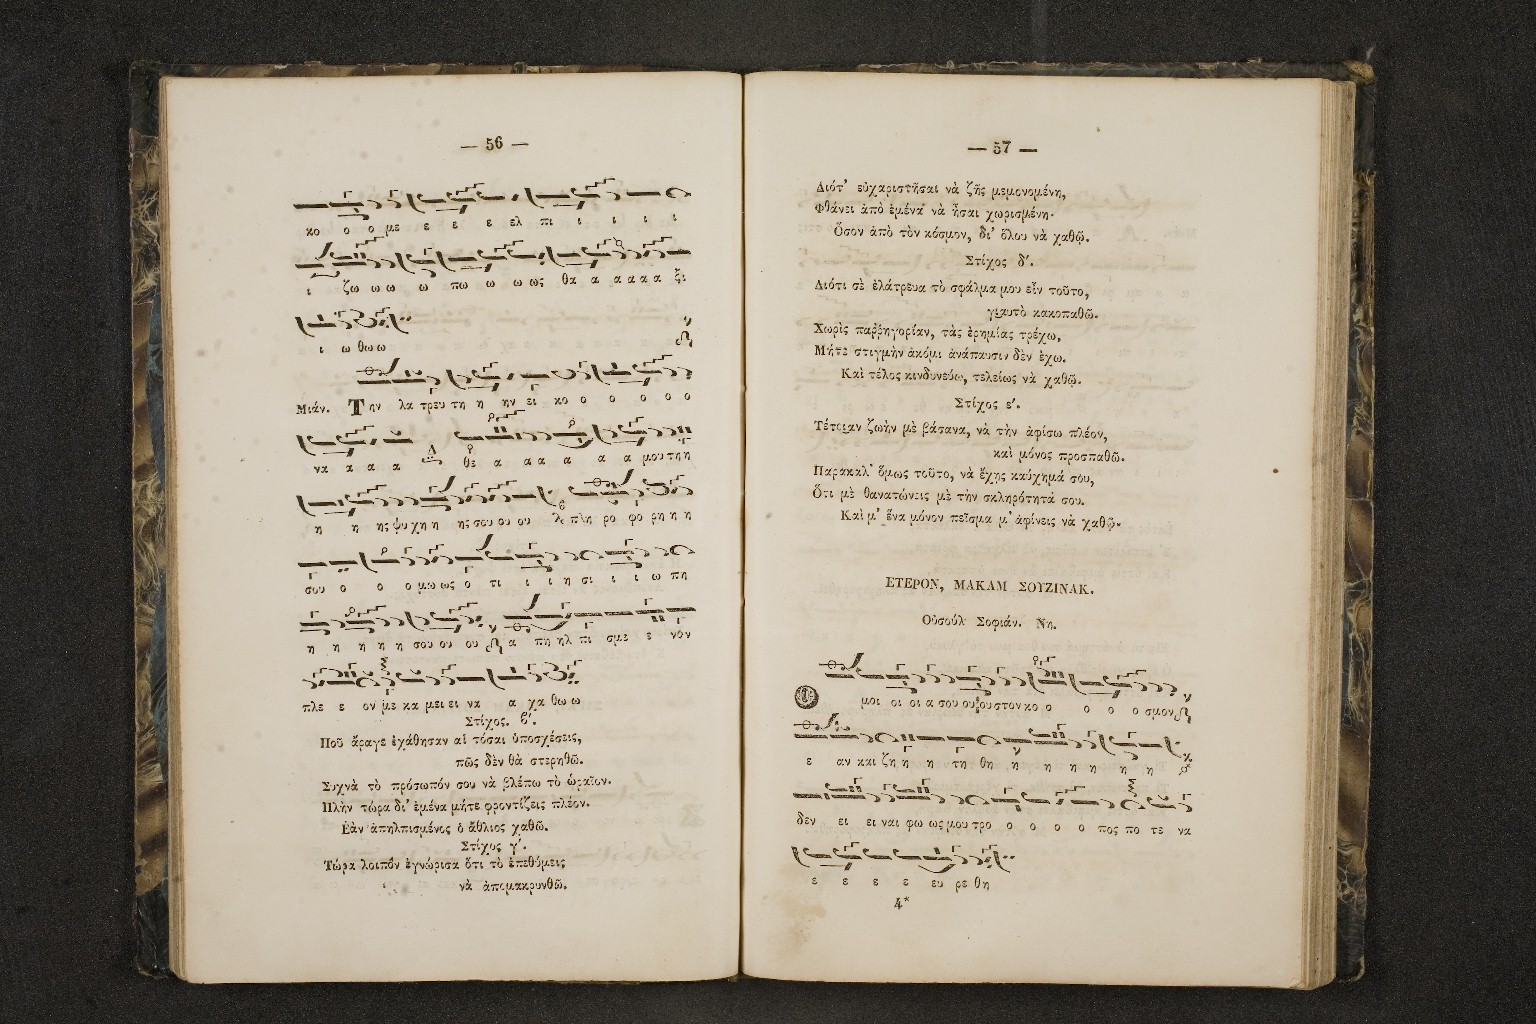 — 56 —
κο ο ο με ε ε ε ελ πι ι ι ι ι
ι ζω ω ω ω πω ω ω ως θα α α α α α ξι
ι ω θω ω
Μιάν. Την λα τρευ τη η ην ει κο ο ο ο ο ο
να α α α θε α α α α α α α μου τη η
η η ης ψυ χη η ης σου ου ου λ πλη ρο φο ρη η η
σου ο ο ο μω ως ο τι ι ι η σι ι ι ω πη
η η η η η σου ου ου α πη ηλ πι σμε ε νον
πλε ε ον με κα μει ει να α χα θω ω
Στίχος. β΄.
Ποῦ ἄραγε ἐχάθησαν αἱ τόσαι ὑποσχέσεις,
πῶς δὲν θὰ στερηθῶ.
Συχνὰ τὸ πρόσωπόν σου νὰ βλέπω τὸ ὡραῖον.
Πλὴν τώρα δι' ἐμένα μήτε φροντίζεις πλέον.
Ἐὰν ἀπηλπισμένος ὁ ἄθλιος χαθῶ.
Στίχος γ΄.
Τώρα λοιπὸν ἐγνώρισα ὅτι τὸ ἐπεθύμεις
νὰ ἀπομακρυνθῶ.
— 57 —
Διότ' εὐχαριστῆσαι νὰ ζῇς μεμονομένη,
Φθάνει ἀπὸ ἐμένα νὰ ἦσαι χωρισμένη·
Ὅσον ἀπὸ τὸν κόσμον, δι' ὅλου νὰ χαθῶ.
Στίχος δ΄.
Διότι σὲ ἐλάτρευα τὸ σφάλμα μου εἶν τοῦτο,
γιαυτὸ κακοπαθῶ.
Χωρὶς παῤῥηγορίαν, τὰς ἐρημίας τρέχω,
Μήτε στιγμὴν ἀκόμι ἀνάπαυσιν δὲν ἔχω.
Καὶ τέλος κινδυνεύω, τελείως νὰ χαθῶ.
Στίχος ε΄.
Τέτοιαν ζωὴν μὲ βάσανα, νὰ τὴν ἀφίσω πλέον,
καὶ μόνος προσπαθῶ.
Παρακαλ' ὅμως τοῦτο, νὰ ἔχῃς καύχημά σου,
Ὅτι μὲ θανατώνεις μὲ τὴν σκληρότητά σου.
Καὶ μ' ἕνα μόνον πεῖσμα μ' ἀφίνεις νὰ χαθῶ·
ΕΤΕΡΟΝ, ΜΑΚΑΜ ΣΟΥΖΙΝΑΚ.
Οὐσοὺλ Σοφιάν. Νη.
μοι οι οι α σου ου ου στον κο ο ο ο ο σμον
ε αν και ζη η η τη θη η η η η η η
δεν ει ει ναι φω ως μου τρο ο ο ο ο πος πο τε να
ε ε ε ε ευ ρε θη
4*